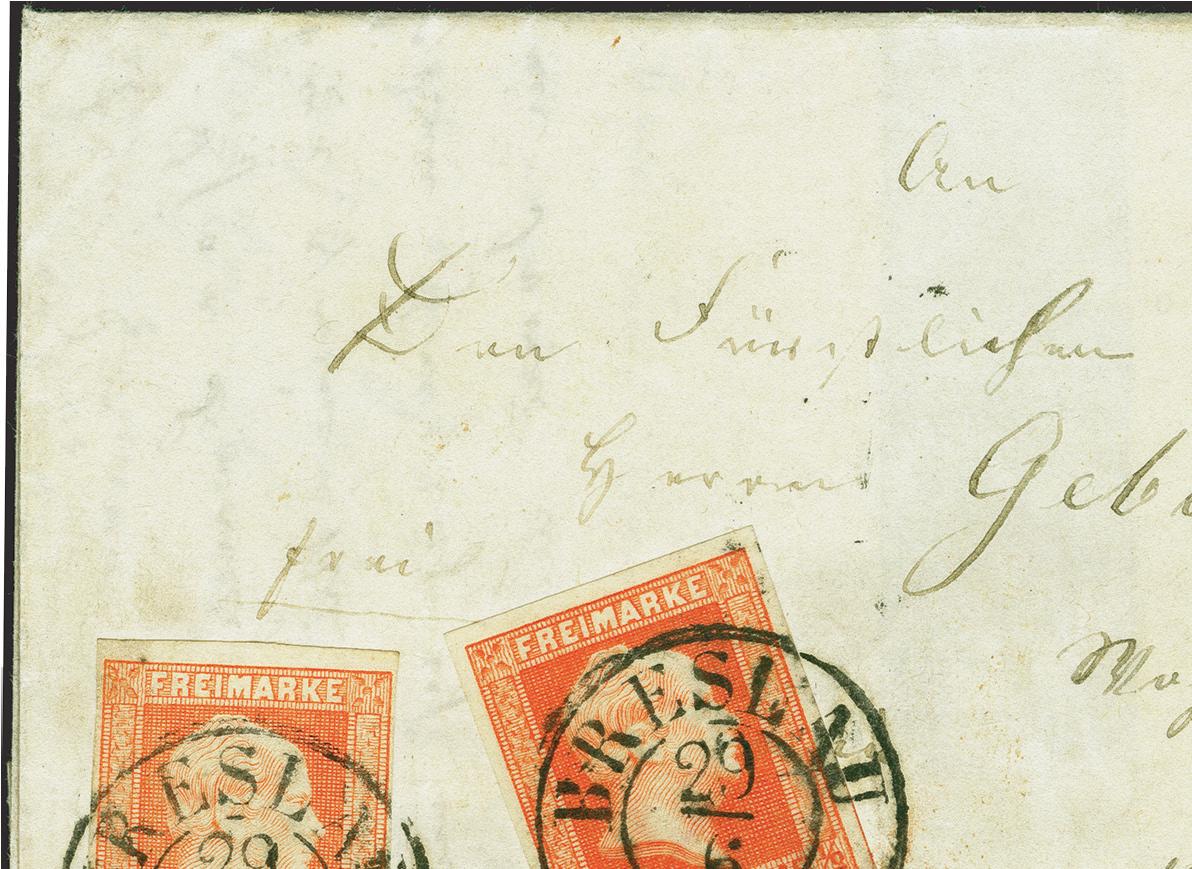 An
Den Fürstlichen
Herrn Geb
frei
FREIMARKE
BRESLAU
29
6.
FREIMARKE
RESLA
29